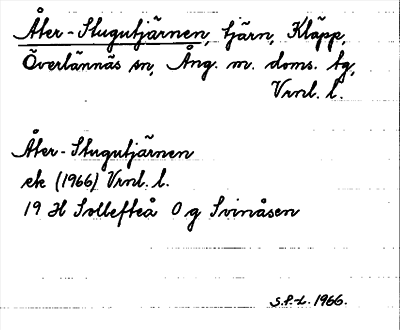 Åter-Stugutjärnen, tjärn, Kläpp,
Överlännäs sn, Ång. m. doms. tg,
Vrnl. l.
Åter-Stugutjärnen
ek (1966) Vrnl. l.
19 H Sollefteå 0 g Svinåsen
S.P-L. 1966.